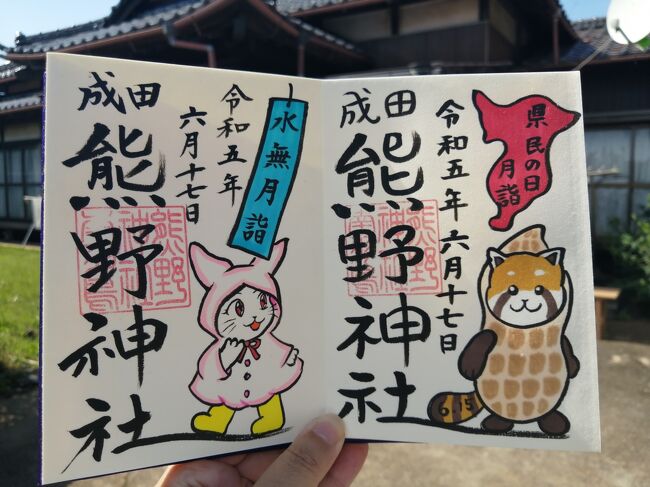 水無月詣
令和五年
六月十七日
成田
熊野神社
県民の日
月詣
令和五年六月十七日
成田
熊野神社
6.15